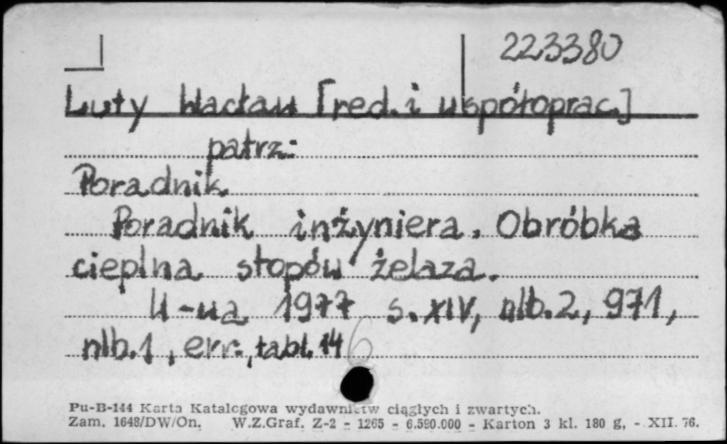 223380
Luty Wacław [red. i współoprac.]
patrz:
Poradnik
Poradnik inżyniera. Obróbka
cieplna stopów żelaza.
W-wa 1977 s. XIV, nlb. 2, 971,
nlb. 1, err., tabl. 14 6
Pu-B-144 Karta Katalogowa wydawnictw ciągłych i zwartych.
Zam. 1648/DW/On. W.Z.Graf. Z-2 - 1265 - 6.590.000 - Karton 3 kl. 180 g, - XII. 76.